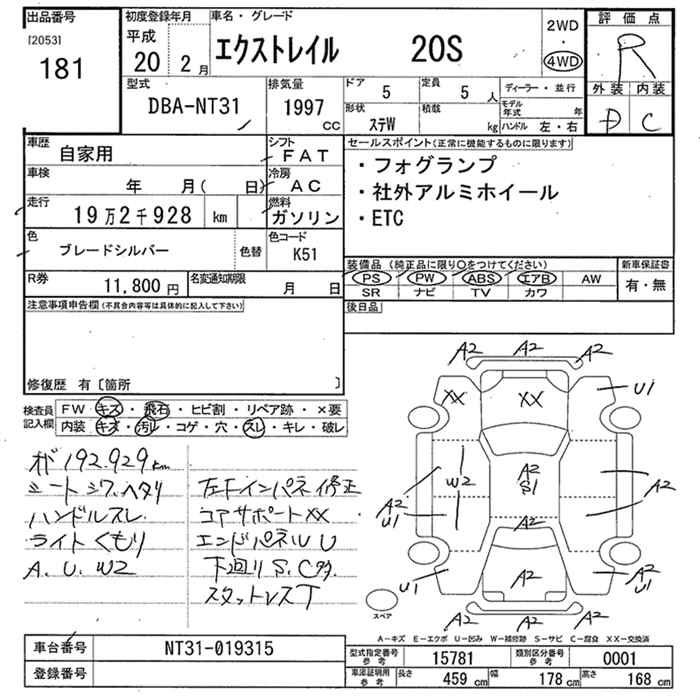 出品番号
[2053]
181
初度登録年月
平成
20 2 月
車名・グレード
エクストレイル 20S
2WD
・
4WD
評価点
R
外装 内装
D C
型式
DBA-NT31
排気量
1997 CC
ドア
5
定員
5 人
形状
ステW
積載
kg
ディーラー・並行
モデル年式 年
ハンドル 左・右
車歴
自家用
シフト
FAT
車検
年 月( 日)
冷房
AC
走行
19万2千928 km
燃料
ガソリン
色
ブレードシルバー
色替
色コード
K51
R券
11,800 円
名変通知期限
月 日
セールスポイント(正常に機能するものに限ります)
・フォグランプ
・社外アルミホイール
・ETC
装備品 (純正品に限り〇をつけてください)
PS PW ABS エアB AW
SR ナビ TV カワ
新車保証書
有・無
後日品
注意事項申告欄(不具合内容等は具体的に記入して下さい)
修復歴 有〔箇所 〕
検査員
記入欄
FW キズ・飛石・ヒビ割・リペア跡・×要
内装 キズ・汚レ・コゲ・穴・スレ・キレ・破レ
192.929km
シートシワ.ヘタリ
ハンドルスレ
ライトくもり
A.U.W2
左Fインパネ修正
コアサポートXX
エンドパネルU
下回りS.C多
スタットレスT
A2 A2 A2
XX XX U1
A2 U1 W2 A2 S1 A2
A2
U1 A2 A2 U1
A2
スペア
A-キズ E-エクボ U-凹み W-補修跡 S-サビ C-腐食 XX-交換済
車台番号
NT31-019315
登録番号
型式指定番号
参考
15781
類別区分番号
参考
0001
車庫証明用
参考
長さ 459 cm
幅 178 cm
高さ 168 cm